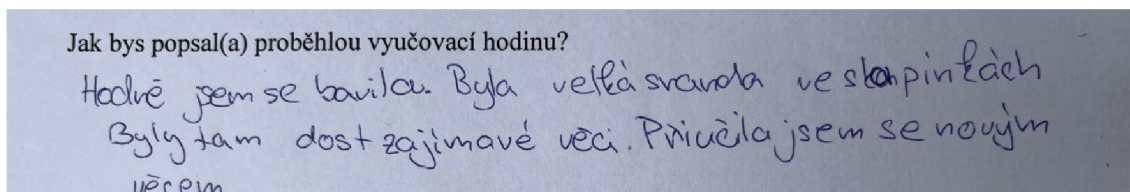 Jak bys popsal(a) proběhlou vyučovací hodinu?
Hodně jsem se bavila. Byla velká sranda ve skupinkách
Byly tam dost zajímavé věci. Přiučila jsem se novým
věcem